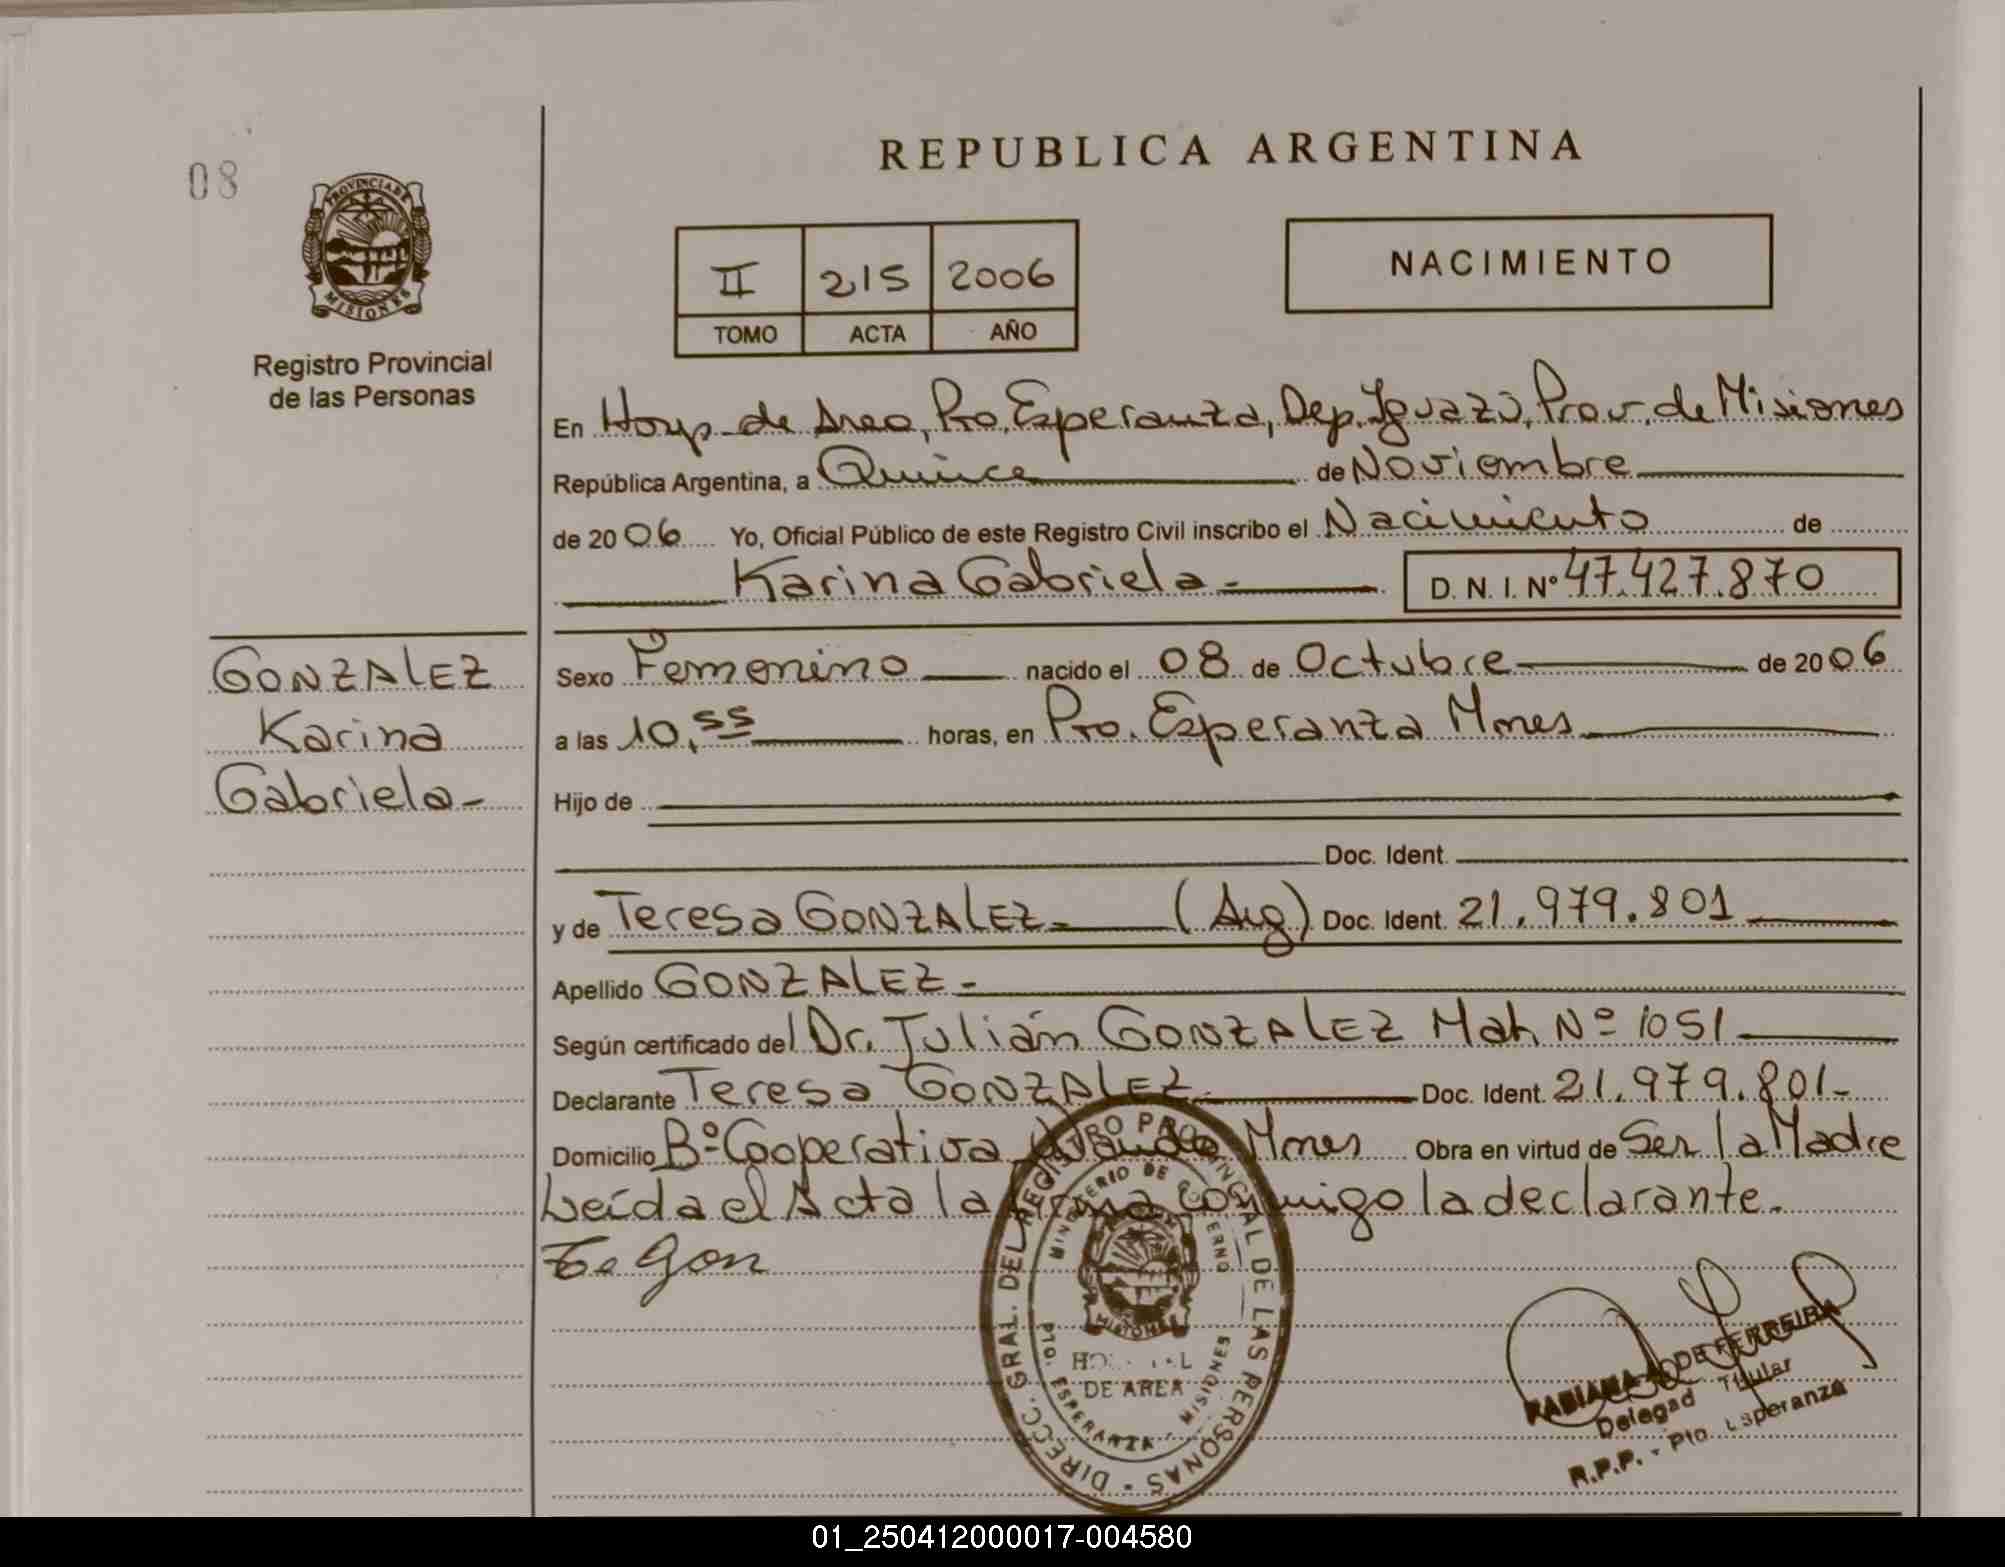 08
PROVINCIA DE
MISIONES
Registro Provincial
de las Personas
REPUBLICA ARGENTINA
II 215 2006
TOMO ACTA AÑO
NACIMIENTO
En Hosp. de Area, Pto. Esperanza, Dep. Iguazú, Prov. de Misiones
República Argentina, a Quince de Noviembre
de 2006 Yo, Oficial Público de este Registro Civil inscribo el Nacimiento de
Karina Gabriela - D. N. I. Nº 47.427.870
GONZALEZ
Karina
Gabriela -
Sexo Femenino nacido el 08 de Octubre de 2006
a las 10,55 horas, en Pto. Esperanza Mnes
Hijo de
Doc. Ident.
y de Teresa GONZALEZ - (Arg) Doc. Ident. 21.979.801
Apellido GONZALEZ -
Según certificado del Dr. Julián GONZALEZ Mat. Nº 1051
Declarante Teresa GONZALEZ Doc. Ident. 21.979.801-
Domicilio Bº Cooperativa Mnes Obra en virtud de Ser la Madre
Leída el Acta la firma conmigo la declarante.
Te Gon
DIRECC. GRAL. DEL REGISTRO PROVINCIAL DE LAS PERSONAS
MINISTERIO DE GOBIERNO
MISIONES
DE AREA
PTO. ESPERANZA - MISIONES
FABIANA DE FERREIRA
Delegad Titular
R.P.P. - Pto. Esperanza
01_250412000017-004580